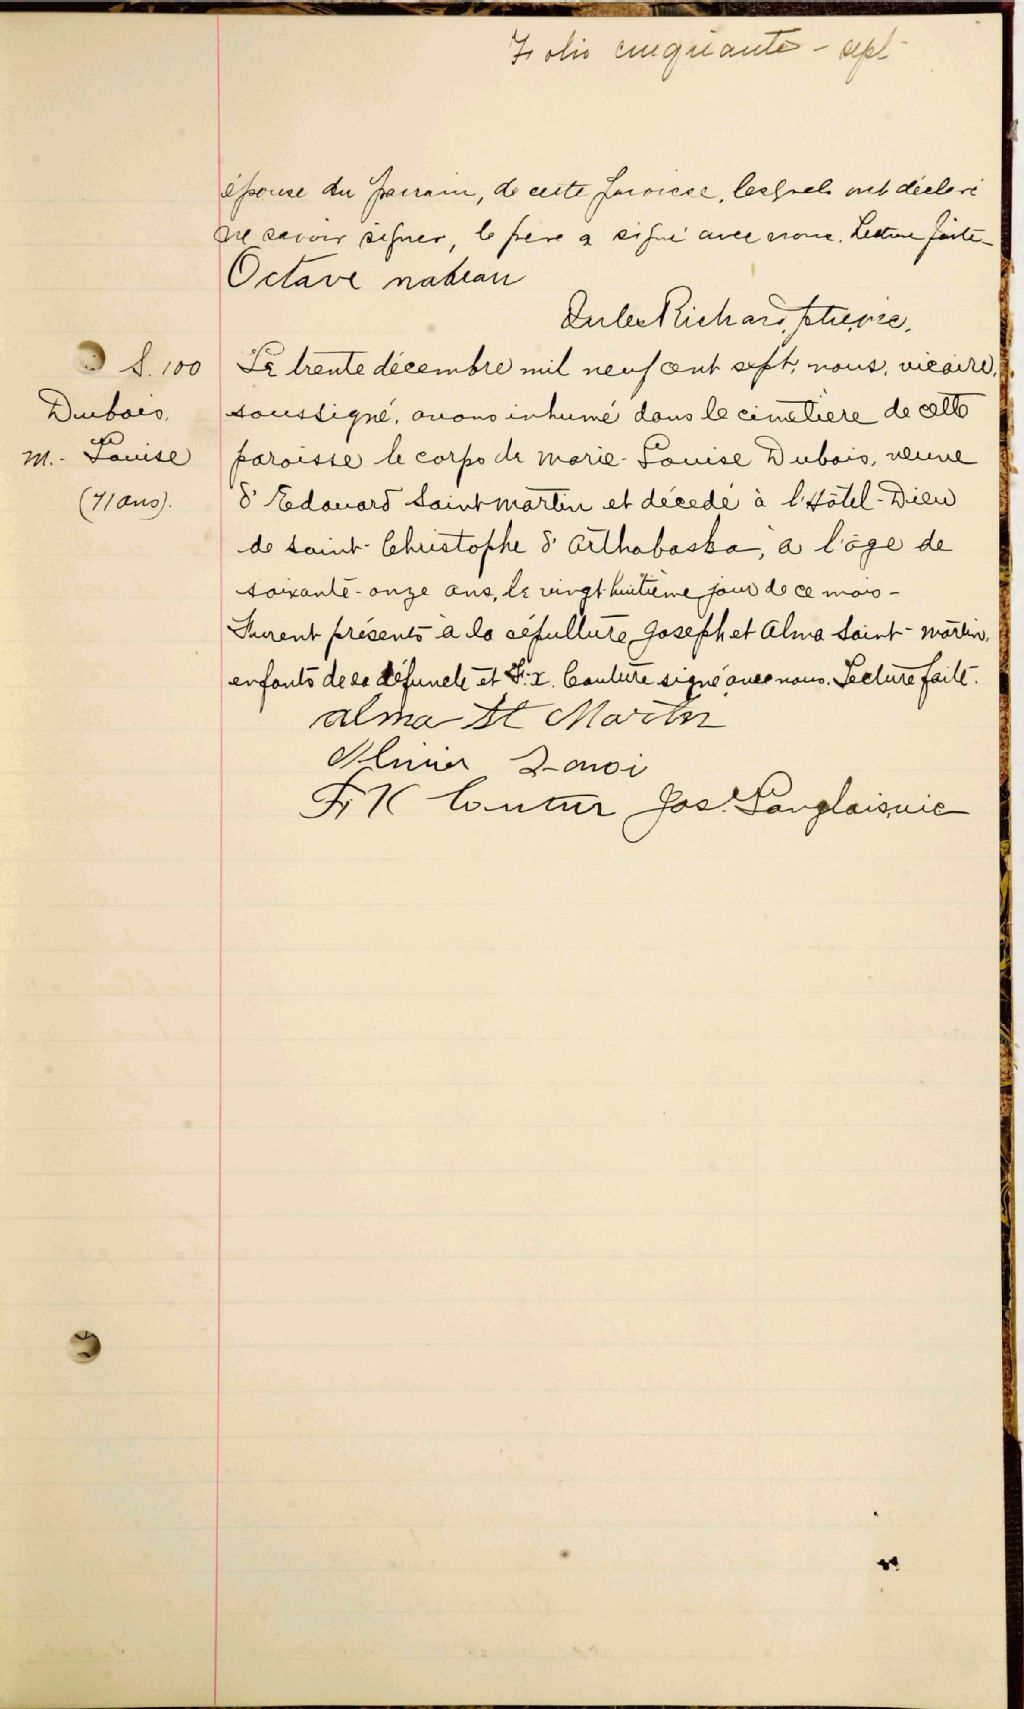 Folio cinquante-sept
épouse du parrain, de cette paroisse, lesquels ont déclaré
ne savoir signer, le père a signé avec nous. Lecture faite-
Octave nadeau
Jules Richard, ptre, vic.
S. 100
Dubois,
M.- Louise
(71 ans).
Le trente décembre mil neuf cent sept, nous, vicaire,
soussigné, avons inhumé dans le cimetière de cette
paroisse le corps de marie-Louise Dubois, veuve
d'Edouard Saint martin et décédé à l'Hôtel-Dieu
de saint-Christophe d'Arthabaska, a l'âge de
soixante-onze ans, le vingt-huitième jour de ce mois-
Furent présents à la sépulture Joseph et Alma Saint-martin,
enfants de la défuncte et F.X. Couture signé avec nous. Lecture faite.
alma St Martin
F X Coutur Jos. Langlais, vic